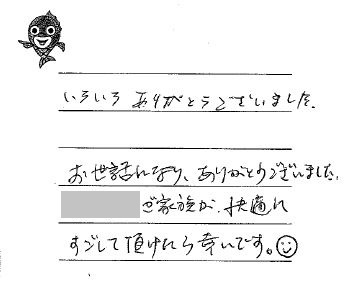 いろいろ ありがとうございました。
お世話になり、ありがとうございました。
ご家族が、快適に
すごして頂けたら幸いです。